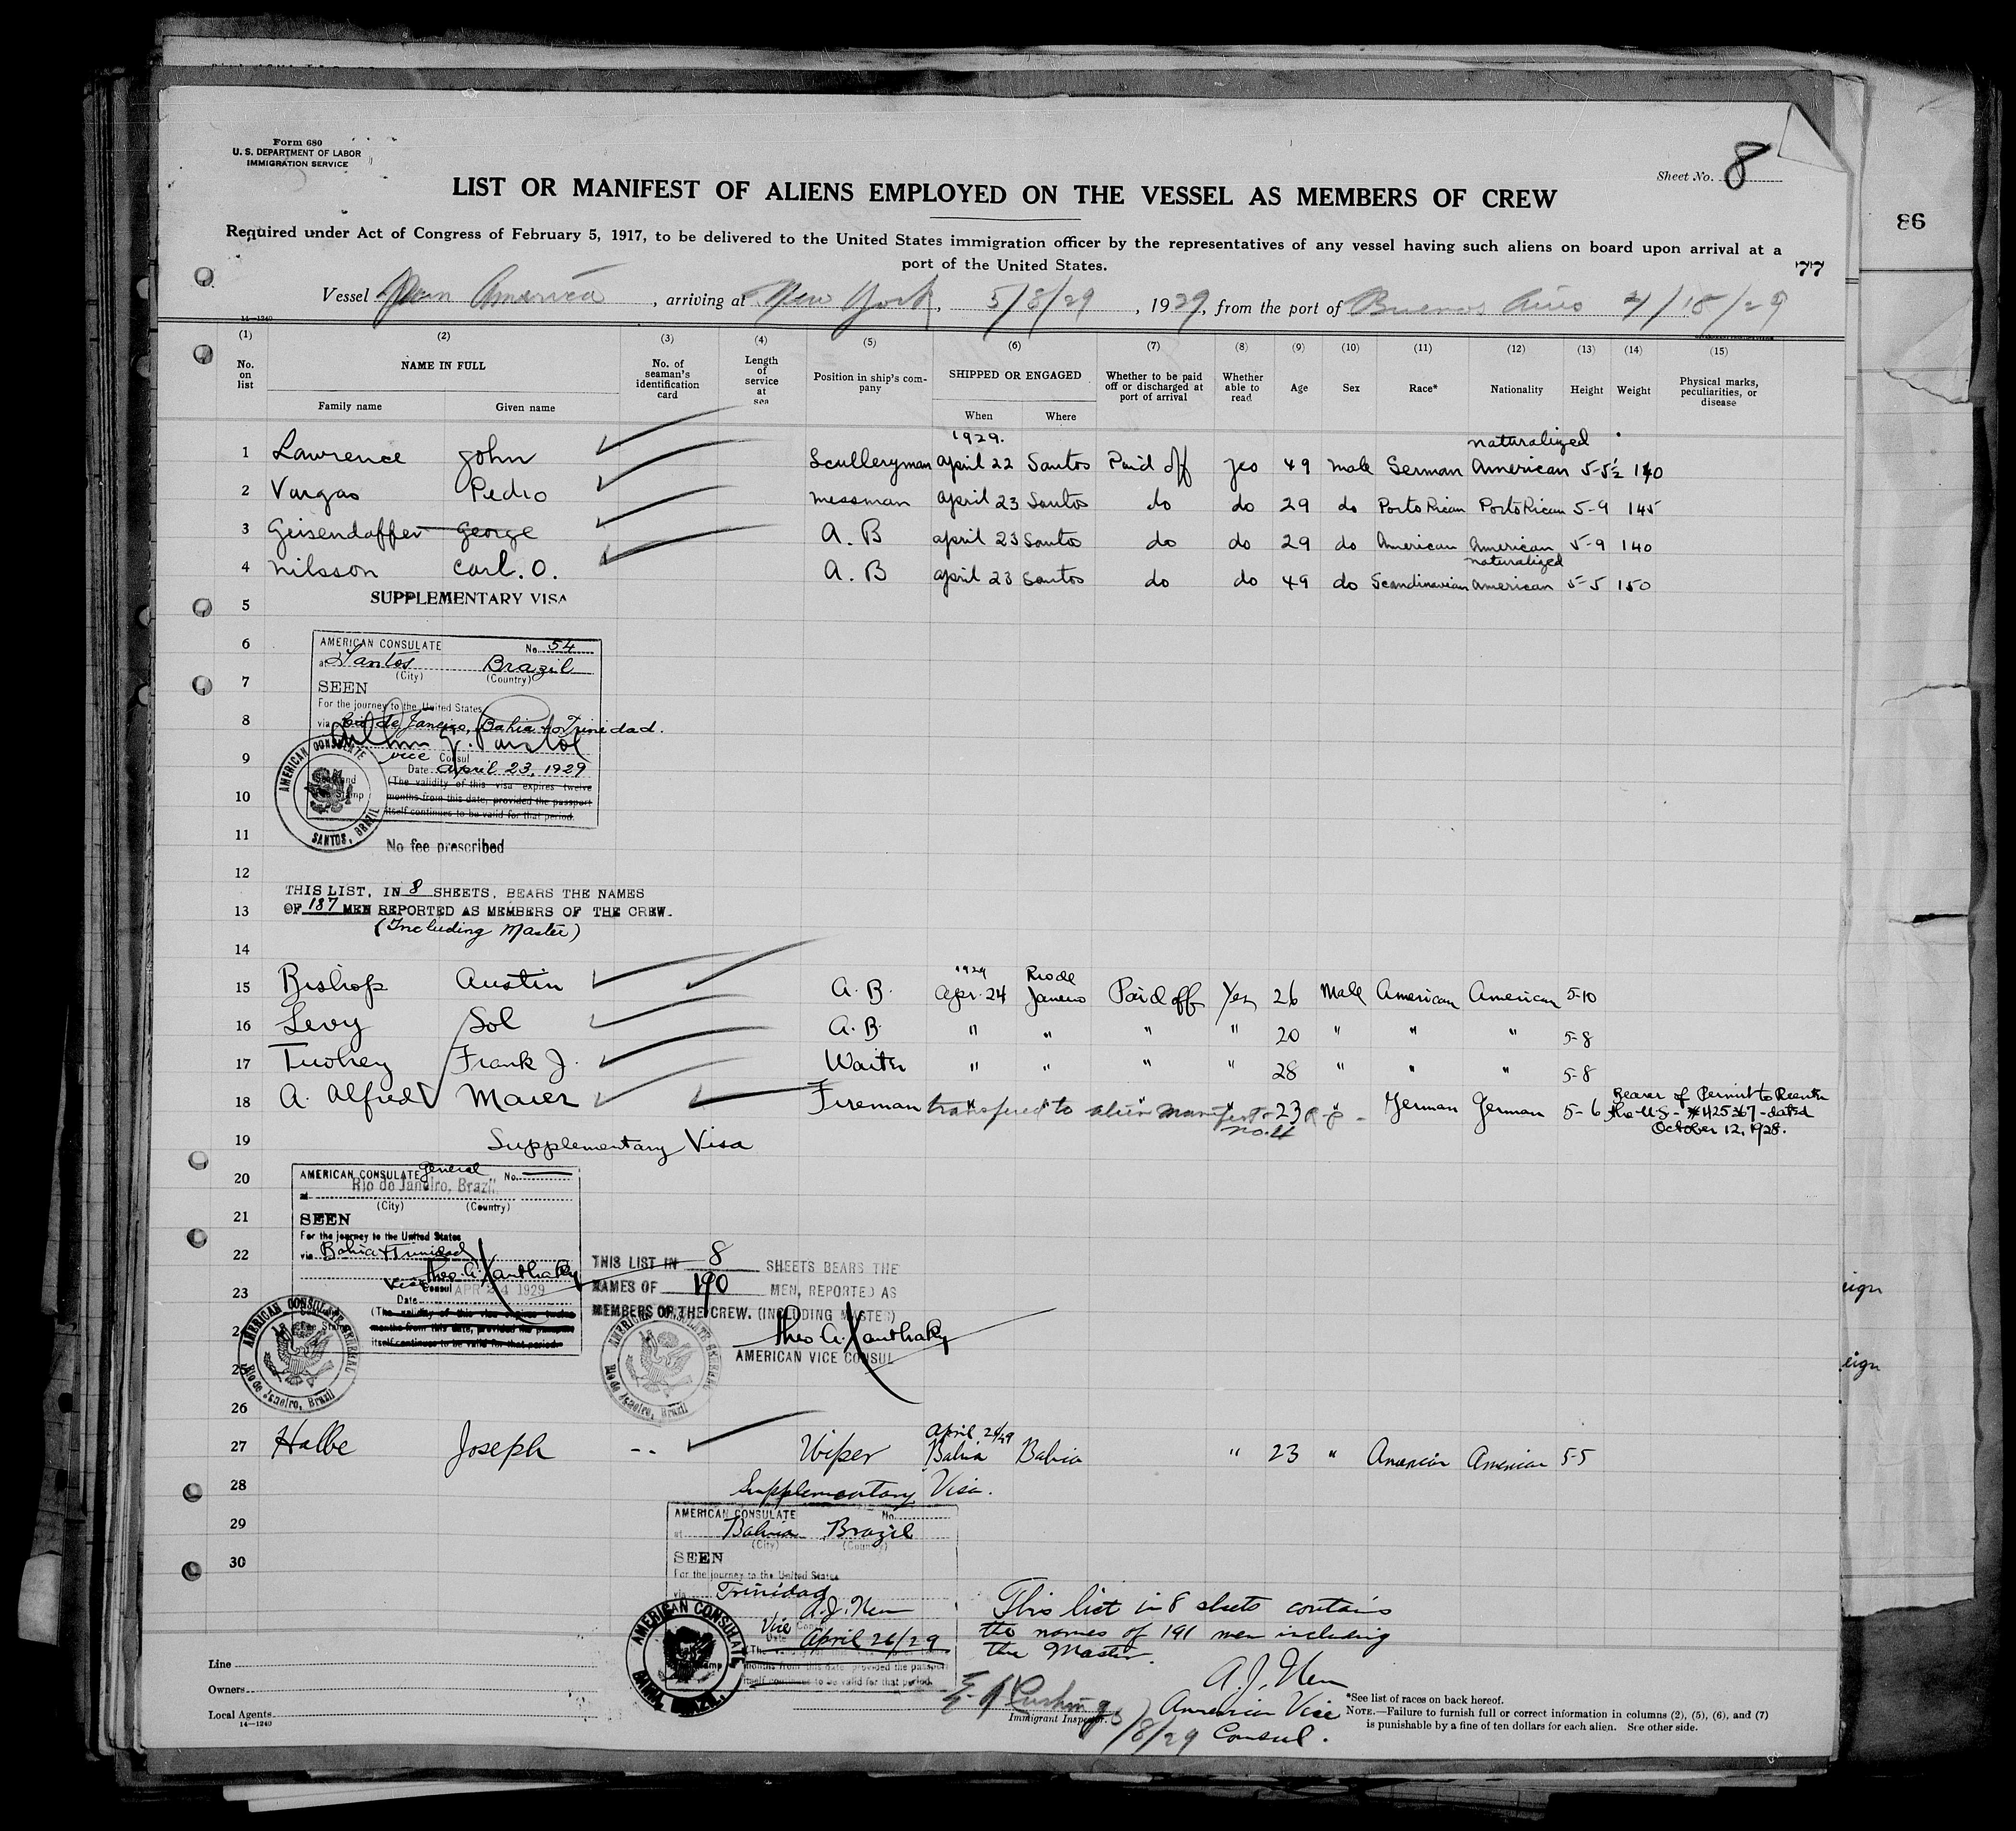 86
Form 680
U. S. DEPARTMENT OF LABOR
IMMIGRATION SERVICE
Sheet No. 8
LIST OR MANIFEST OF ALIENS EMPLOYED ON THE VESSEL AS MEMBERS OF CREW
Required under Act of Congress of February 5, 1917, to be delivered to the United States immigration officer by the representatives of any vessel having such aliens on board upon arrival at a
port of the United States.
77
Vessel Pan America, arriving at New York, 5/8/29, 1929, from the port of Buenos Aires 4/18/29
14—1240
(1) (2) (3) (4) (5) (6) (7) (8) (9) (10) (11) (12) (13) (14) (15)
No. on list NAME IN FULL Family name Given name No. of seaman's identification card Length of service at sea Position in ship's company SHIPPED OR ENGAGED When Where Whether to be paid off or discharged at port of arrival Whether able to read Age Sex Race* Nationality Height Weight Physical marks, peculiarities, or disease
1929. naturalized
1 Lawrence John Sculleryman April 22 Santos Paid off yes 49 male German American 5-5½ 140
2 Vargas Pedro messman April 23 Santos do do 29 do Porto Rican Porto Rican 5-9 145
3 Geisendaffer George A. B april 23 Santos do do 29 do American American 5-9 140
naturalized
4 Nilsson Carl. O. A. B april 23 Santos do do 49 do Scandinavian American 5-5 150
5 SUPPLEMENTARY VISA
6 AMERICAN CONSULATE No. 54
at Santos Brazil
(City) (Country)
7 SEEN
For the journey to the United States
8 via Rio de Janeiro, Bahia & Trinidad.
9 vice Consul
Date April 23, 1929
Seal and Stamp
(The validity of this visa expires twelve
10 months from this date, provided the passport
itself continues to be valid for that period.
AMERICAN CONSULATE SANTOS, BRAZIL
11 No fee prescribed
12 THIS LIST, IN 8 SHEETS, BEARS THE NAMES
13 OF 187 MEN REPORTED AS MEMBERS OF THE CREW.
(Including Master)
14
1929 Rio de
15 Bishop Austin A. B. Apr. 24 Janeiro Paid off Yes 26 Male American American 5-10
16 Levy Sol A. B. " " " " 20 " " " 5-8
17 Twohey Frank J. Waiter " " " " 28 " " " 5-8
18 A. Alfred Maier Fireman transfered to alien manifest 23 German German 5-6 Bearer of Permit to Reenter
no. 4 the U.S. - #425367 - dated
October 12, 1928.
19 Supplementary Visa
20 AMERICAN CONSULATE General No.
at Rio de Janeiro, Brazil
(City) (Country)
21 SEEN
For the journey to the United States
22 via Bahia & Trinidad
Theo. A. Xanthaky
Vice Consul APR 24 1929
23 Date
(The validity of this visa expires twelve
24 months from this date, provided the passport
itself continues to be valid for that period.
25
AMERICAN CONSULATE GENERAL Rio de Janeiro, Brazil
THIS LIST IN 8 SHEETS BEARS THE
NAMES OF 190 MEN, REPORTED AS
MEMBERS OF THE CREW. (INCLUDING MASTER)
Theo. A. Xanthaky
AMERICAN VICE CONSUL
AMERICAN CONSULATE GENERAL Rio de Janeiro, Brazil
26
April 26/29
27 Halbe Joseph -- Wiper Bahia Bahia " 23 " American American 5-5
28 Supplementary Visa.
29 AMERICAN CONSULATE No.
at Bahia Brazil
(City) (Country)
30 SEEN
For the journey to the United States
via Trinidad
Vice Consul
Date April 26/29
(The validity of this visa expires twelve
months from this date, provided the passport
itself continues to be valid for that period.
AMERICAN CONSULATE BAHIA, BRAZIL
This list in 8 sheets contains
the names of 191 men including
the Master.
American Vice
Consul.
Line
Owners
Local Agents
14—1240
Cushing 5/8/29
Immigrant Inspector.
*See list of races on back hereof.
NOTE.—Failure to furnish full or correct information in columns (2), (5), (6), and (7)
is punishable by a fine of ten dollars for each alien. See other side.
eign
eign